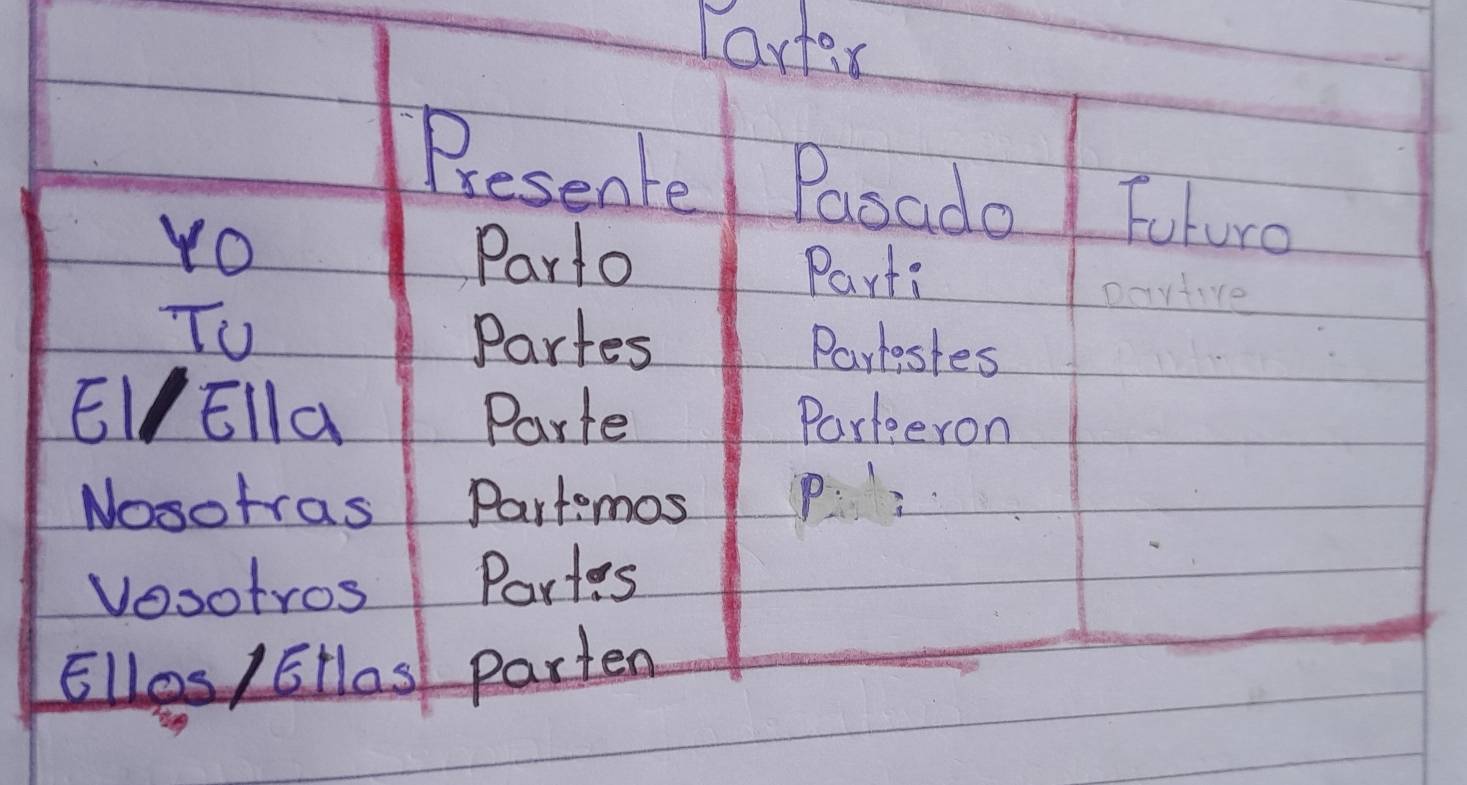 Partir
Presente Pasado Futuro
Yo Parto Parti partire
Tu Partes Partistes
El/Ella Parte Partieron
Nosotras Partimos
Vosotros Partis
Ellos/Ellas parten